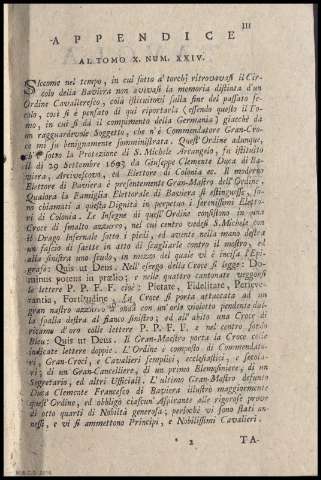 III
APPENDICE
AL TOMO X. NUM. XXIV.
Siccome nel tempo, in cui sotto a' torchj ritrovavasi il Cir-
colo della Baviera non avevasi la memoria distinta d'un
Ordine Cavalleresco, colà istituitovi sulla fine del passato se-
colo, così si è pensato di quì riportarla (essendo questo il To-
mo, in cui si dà il compimento della Germania) giacchè da
un ragguardevole Soggetto, che n'è Commendatore Gran-Cro-
ce mi fu benignamente somministrata. Quest'Ordine adunque,
sotto la Protezione di S. Michele Arcangelo, fu istituito
il dì 29 Settembre 1693 da Giuseppe Clemente Duca di Ba-
viera, Arcivescovo, ed Elettore di Colonia ec. Il moderno
Elettore di Baviera è presentemente Gran-Mastro dell'Ordine.
Qualora la Famiglia Elettorale di Baviera si estinguesse, so-
no chiamati a questa Dignità in perpetuo i serenissimi Eletto-
ri di Colonia. Le Insegne di quest'Ordine consistono in una
Croce di smalto azzurro, nel cui centro vedesi S. Michele con
il Drago Infernale sotto i piedi, ed avente nella mano destra
un fascio di saette in atto di scagliarle contro il mostro, ed
alla sinistra uno scudo, in mezzo del quale vi è incisa l'Epi-
grafe: Quis ut Deus. Nell'esergo della Croce si legge: Do-
minus potens in prælio; e nelle quattro cantonate veggonsi
le lettere P. P. F. F. cioè: Pietate, Fidelitate, Perseve-
rantia, Fortitudine. La Croce si porta attaccata ad un
gran nastro azzurro d'onda con un'orlo violetto pendente dal-
la spalla destra al fianco sinistro; ed all'abito una Croce di
ricamo d'oro colle lettere P. P. F. F. e nel centro fondo
Bleu: Quis ut Deus. Il Gran-Mastro porta la Croce colle
indicate lettere doppie. L'Ordine è composto di Commendato-
ri, Gran-Croci, e Cavalieri semplici, ecclesiastici, e secola-
ri; di un Gran-Cancelliere, di un primo Elemosiniere, di un
Segretario, ed altri Uffiziali. L'ultimo Gran-Mastro defunto
Duca Clemente Francesco di Baviera illustrò maggiormente
quest'Ordine, ed obbligò ciascun'Aspirante alle rigorose prove
di otto quarti di Nobiltà generosa; perlochè vi sono stati an-
nessi, e vi si ammettono Principi, e Nobilissimi Cavalieri.
* 2 TA-